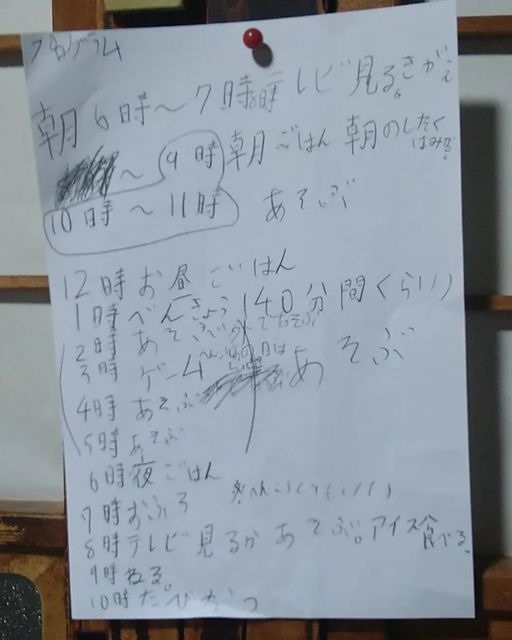 プログラム
朝6時〜7時 テレビ見る。きがえ
〜9時 朝ごはん 朝のしたく はみがき
10時〜11時 あそぶ
12時お昼ごはん
1時べんきょう(40分間くらい)
2時あそぶ 外であそぶ
3時ゲーム の日は あそぶ
4時あそぶ
5時あそぶ
6時夜ごはん
7時おふろ
8時テレビ見るかあそぶ。アイス食べる
9時ねる。
10時